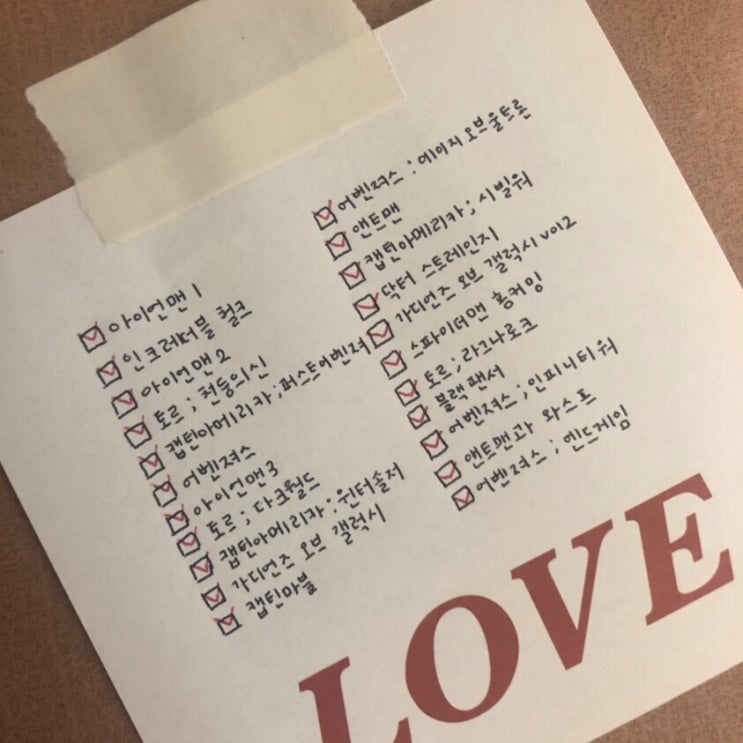 아이언맨 1
인크레더블 헐크
아이언맨 2
토르 ; 천둥의신
캡틴아메리카 ; 퍼스트어벤져
어벤져스
아이언맨 3
토르 ; 다크월드
캡틴아메리카 ; 윈터솔져
가디언즈 오브 갤럭시
캡틴마블
어벤져스 ; 에이지 오브울트론
앤트맨
캡틴아메리카 ; 시빌워
닥터 스트레인지
가디언즈 오브 갤럭시 vol2
스파이더맨 홈커밍
토르 ; 라그나로크
블랙팬서
어벤져스 ; 인피니티워
앤트맨과 와스프
어벤져스 ; 엔드게임
LOVE